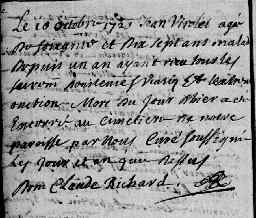 Le 10 octobre 1721 Jean Virolet agé
De soixante et dix sept ans malade
Depuis un an ayant reçu tous les
Viatiq Ext
onction Mort Du Jour D'hier a eté
Enterré au Cimetiere De notre
paroisse par Nous Curé soussigné
Les Jour et an que Dessus
Dom Claude Richard